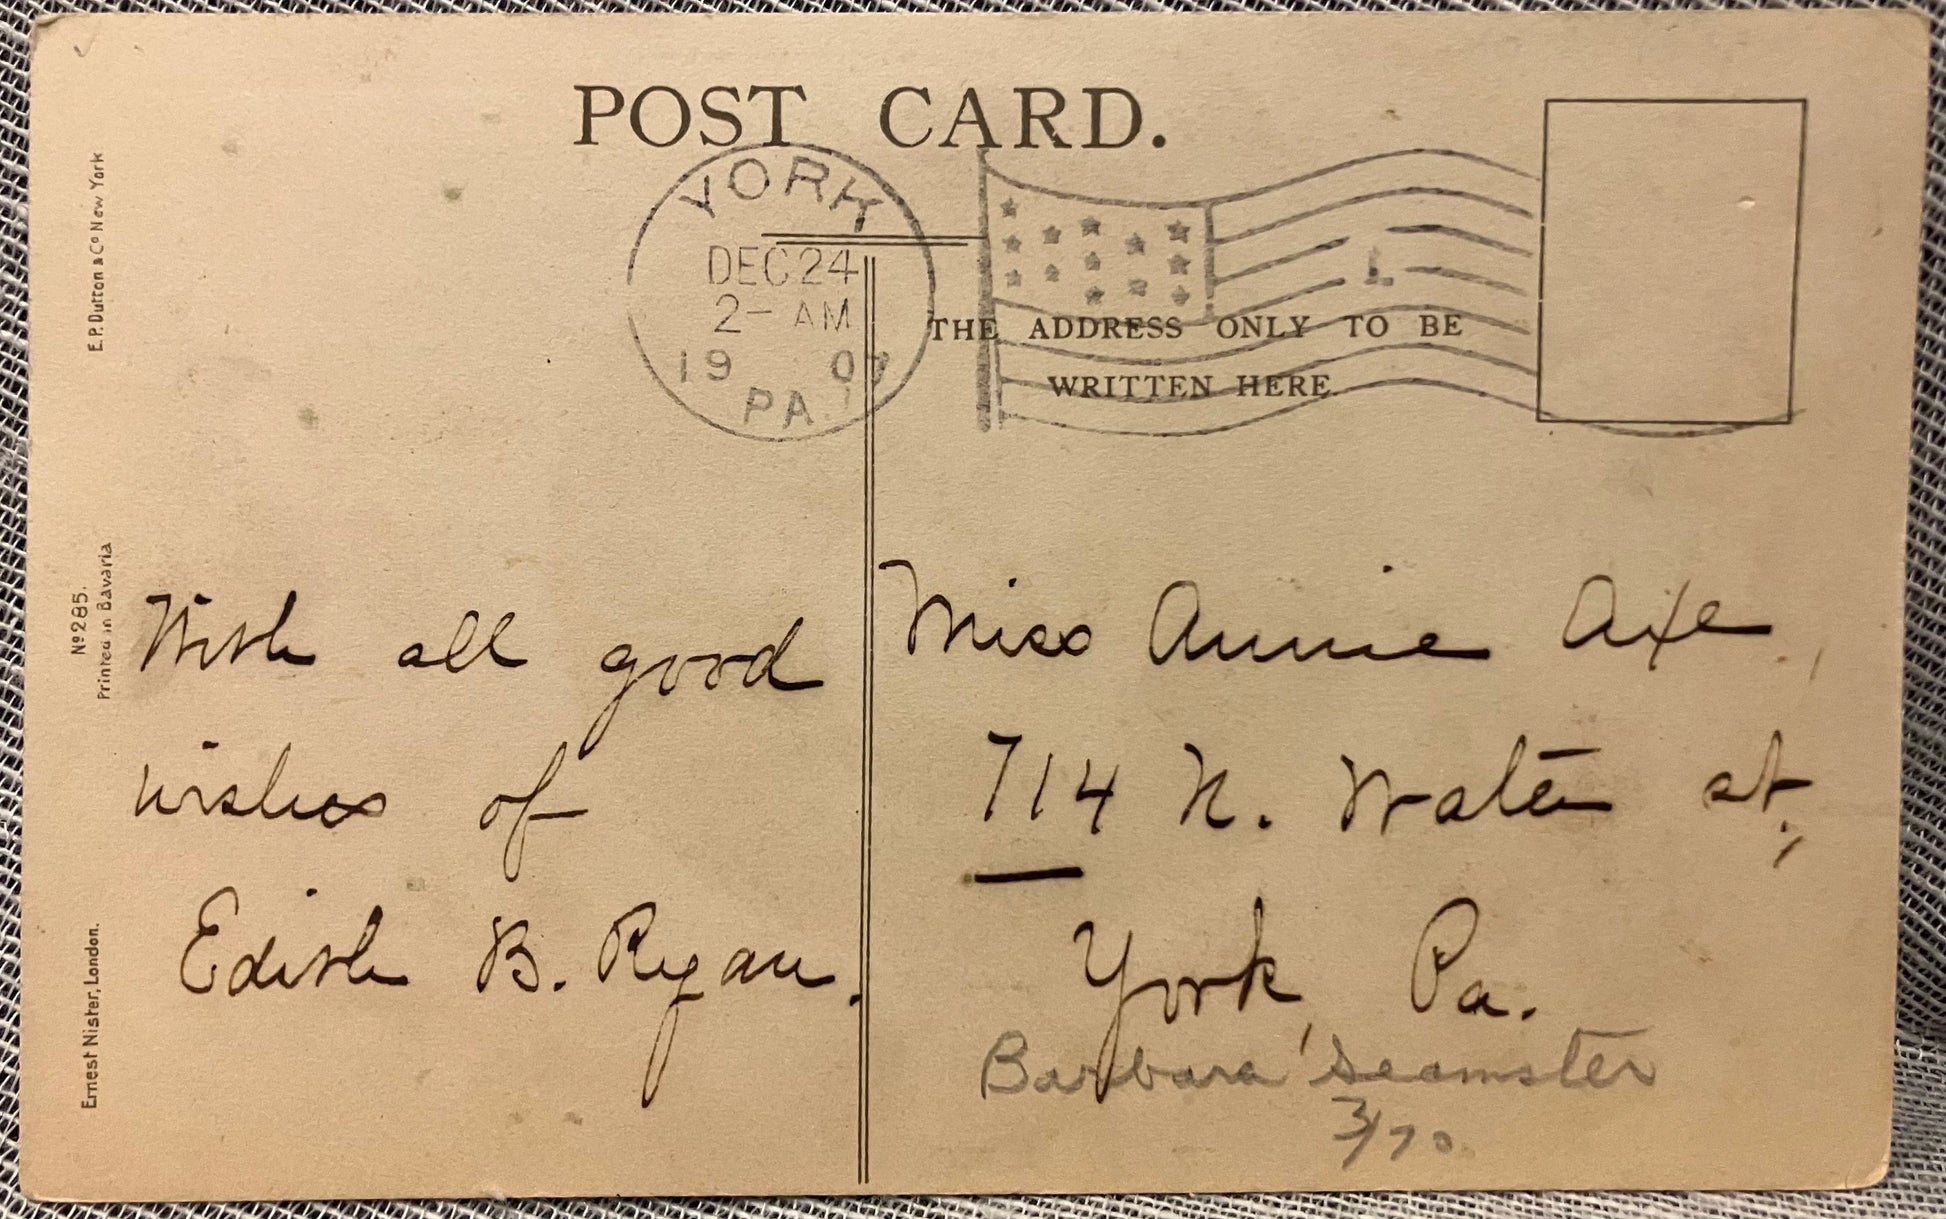 POST CARD.
YORK
DEC 24
2- AM
19 07
PA.
1
THE ADDRESS ONLY TO BE
WRITTEN HERE.
E.P. Dutton & Co New York
Nº 285.
Printed in Bavaria
Ernest Nister, London.
With all good
wishes of
Edith B. Ryan.
Miss Annie Axe,
714 N. Water st.,
York, Pa.
Barbara Seamster
3/70